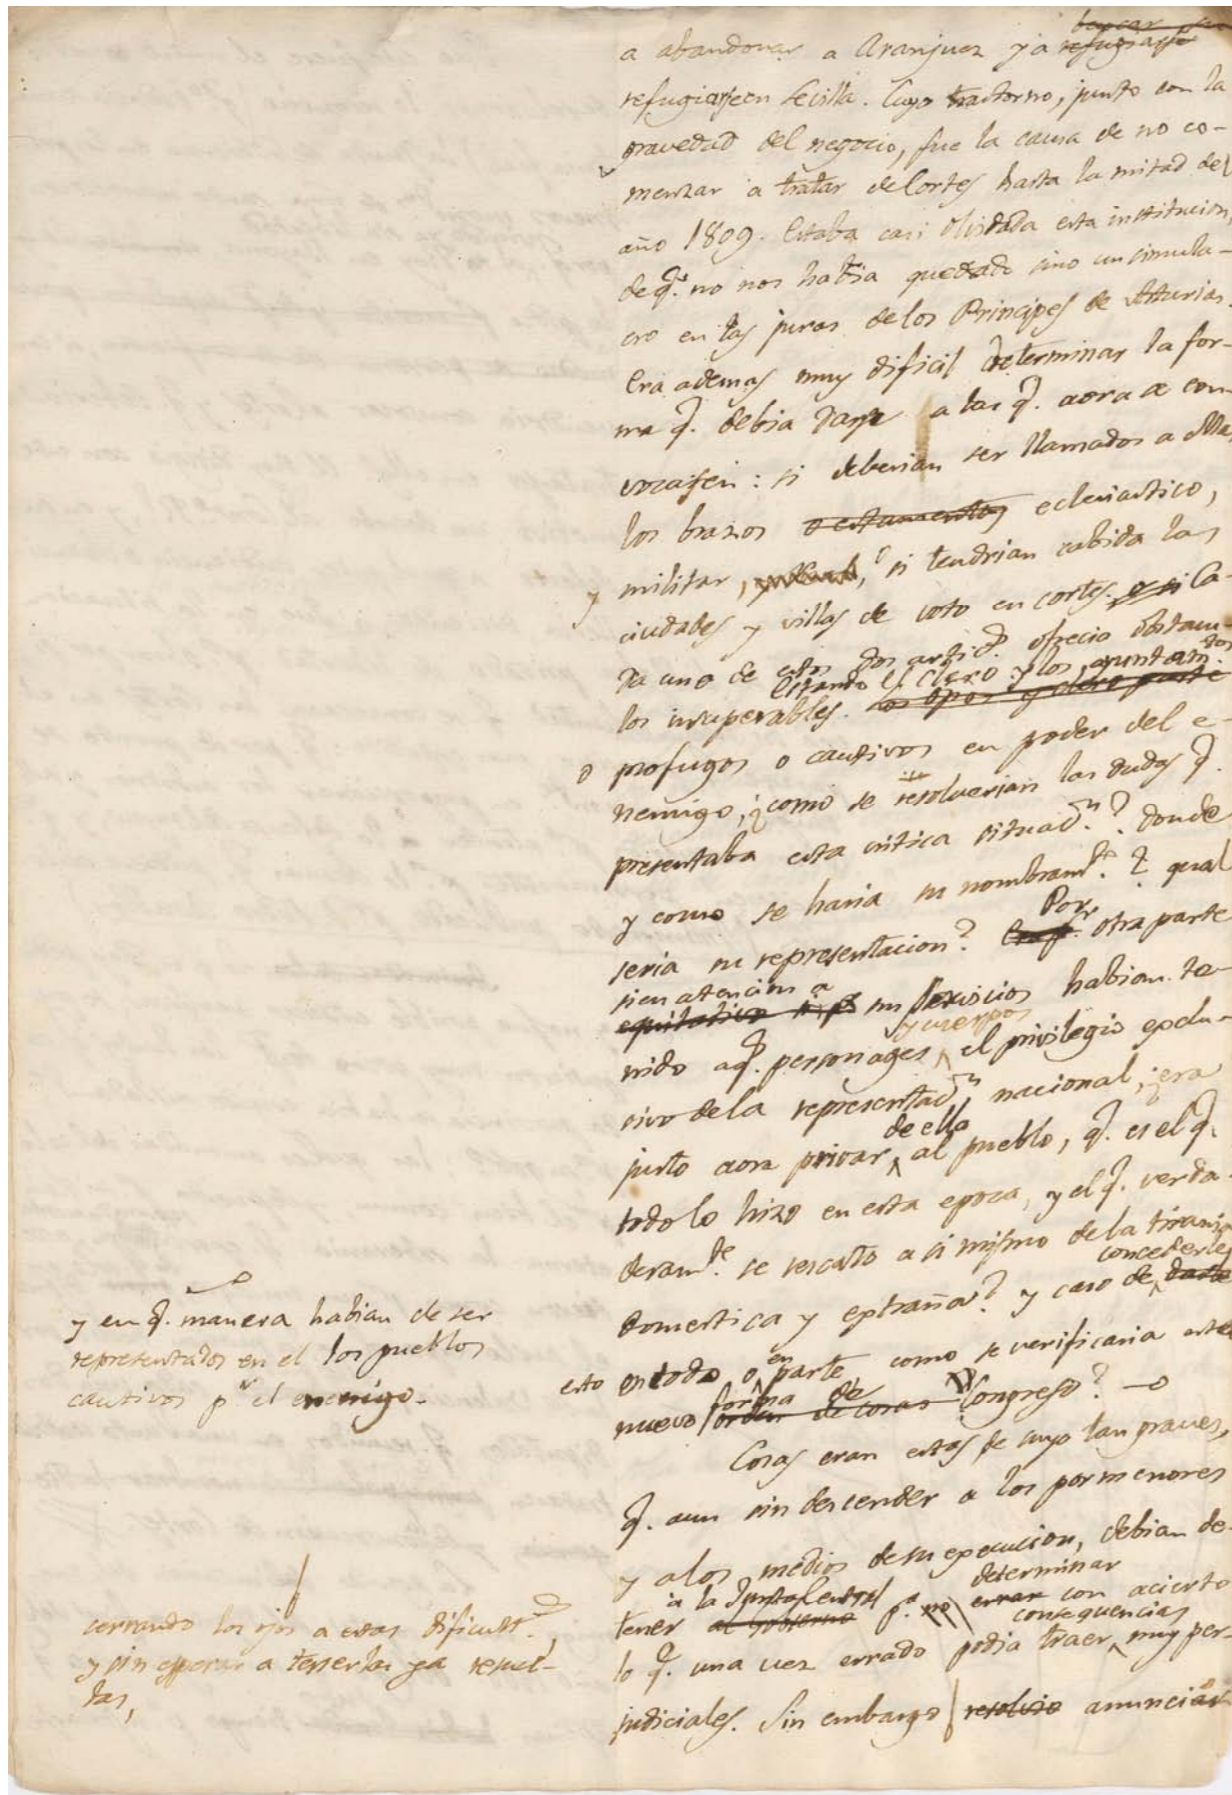 a abandonar a Aranjuez y a refugiarse
buscar
refugiarse en Sevilla. Cuyo trastorno, junto con la
gravedad del negocio, fue la causa de no co-
menzar a tratar de Cortes hasta la mitad del
año 1809. Estaba casi olvidada esta institucion,
de q.e no nos habia quedado sino un simula-
cro en las juras de los Principes de Asturias.
Era ademas muy dificil determinar la for-
ma q. debia darse a las q. aora se con-
vocasen: si deberian ser llamados a ella
los brazos o estamentos eclesiastico,
y militar, si tendrian cabida las
ciudades y villas de voto en cortes. o si Ca-
da uno de estos dos artic.s ofrecia obstacu-
los insuperables. Estando el clero y los ayuntam.tos
profugos o cautivos en poder del e-
nemigo, ¿como se resolverian las dudas q.
presentaba esta critica situac.n? donde
y como se haria su nombram.to? ¿ qual
seria su representacion? Por otra parte
si en atencion a sus servicios habian te-
nido aq.s personages y cuerpos el privilegio exclu-
sivo de la representac.n nacional, ¿era
justo aora privar de ella al pueblo, q. es el q.
todo lo hizo en esta epoca, y el q. verda-
deram.te se rescato a si mismo de la tirania
domestica y extraña? y caso de concederle darle
esto en todo o en parte como se verificaria este
nuevo forma de orden de cosas Congreso?
y en q. manera habian de ser
representados en el los pueblos
cautivos p.r el enemigo.
Cosas eran estas de suyo tan graves,
q. aun sin descender a los pormenores
y a los medios de su execucion, debian de-
tener a la Junta Central al gobierno p.a no errar determinar con acierto
lo q. una vez errado podia traer consequencias muy per-
judiciales. Sin embargo resolvio anunciar
cerrando los ojos a estas dificult.s,
y sin esperar a tenerlas ya resuel-
tas,